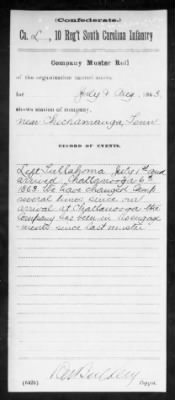 (Confederate.)
Co. L, 10 Reg't South Carolina Infantry
Company Muster Roll
of the organization named above,
for July & Aug, 1863.
station of company,
near Chickamauga, Tenn
RECORD OF EVENTS.
Left Tullahoma July 1st and
arrived Chattanooga 6th
1863. We have changed Camp
several times since our
arrival at Chattanooga the
Company has been in no engage
ments since last muster
(642b)
Copyist.